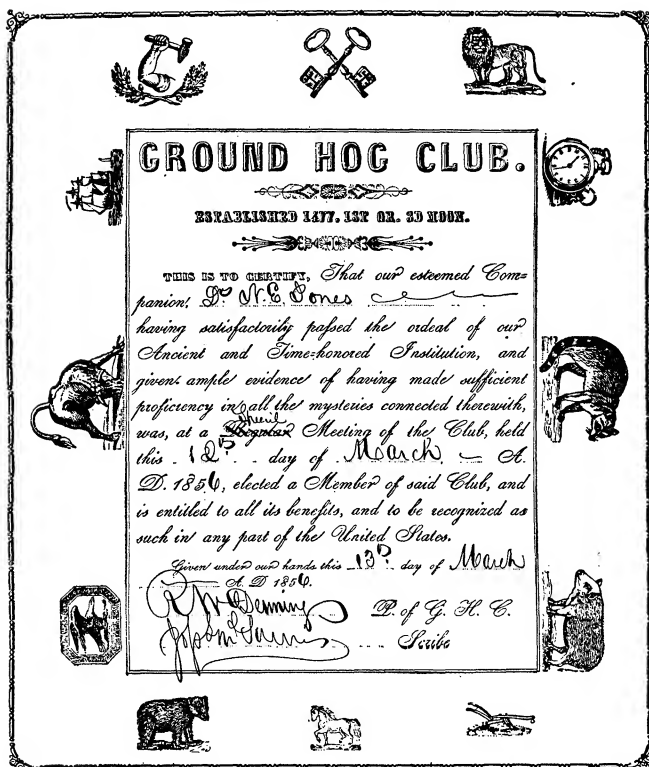 GROUND HOG CLUB.
ESTABLISHED 1477. 1ST QR. 3D MOON.
THIS IS TO CERTIFY, That our esteemed Com=
panion, Dr N. E. Jones
having satisfactorily passed the ordeal of our
Ancient and Time=honored Institution, and
given ample evidence of having made sufficient
proficiency in all the mysteries connected therewith,
was, at a Regular Meeting of the Club, held
this 12th day of March A.
D. 1856, elected a Member of said Club, and
is entitled to all its benefits, and to be recognized as
such in any part of the United States.
Given under our hands this 13th day of March
A. D. 1856.
Denning P. of G. H. C.
Scribe